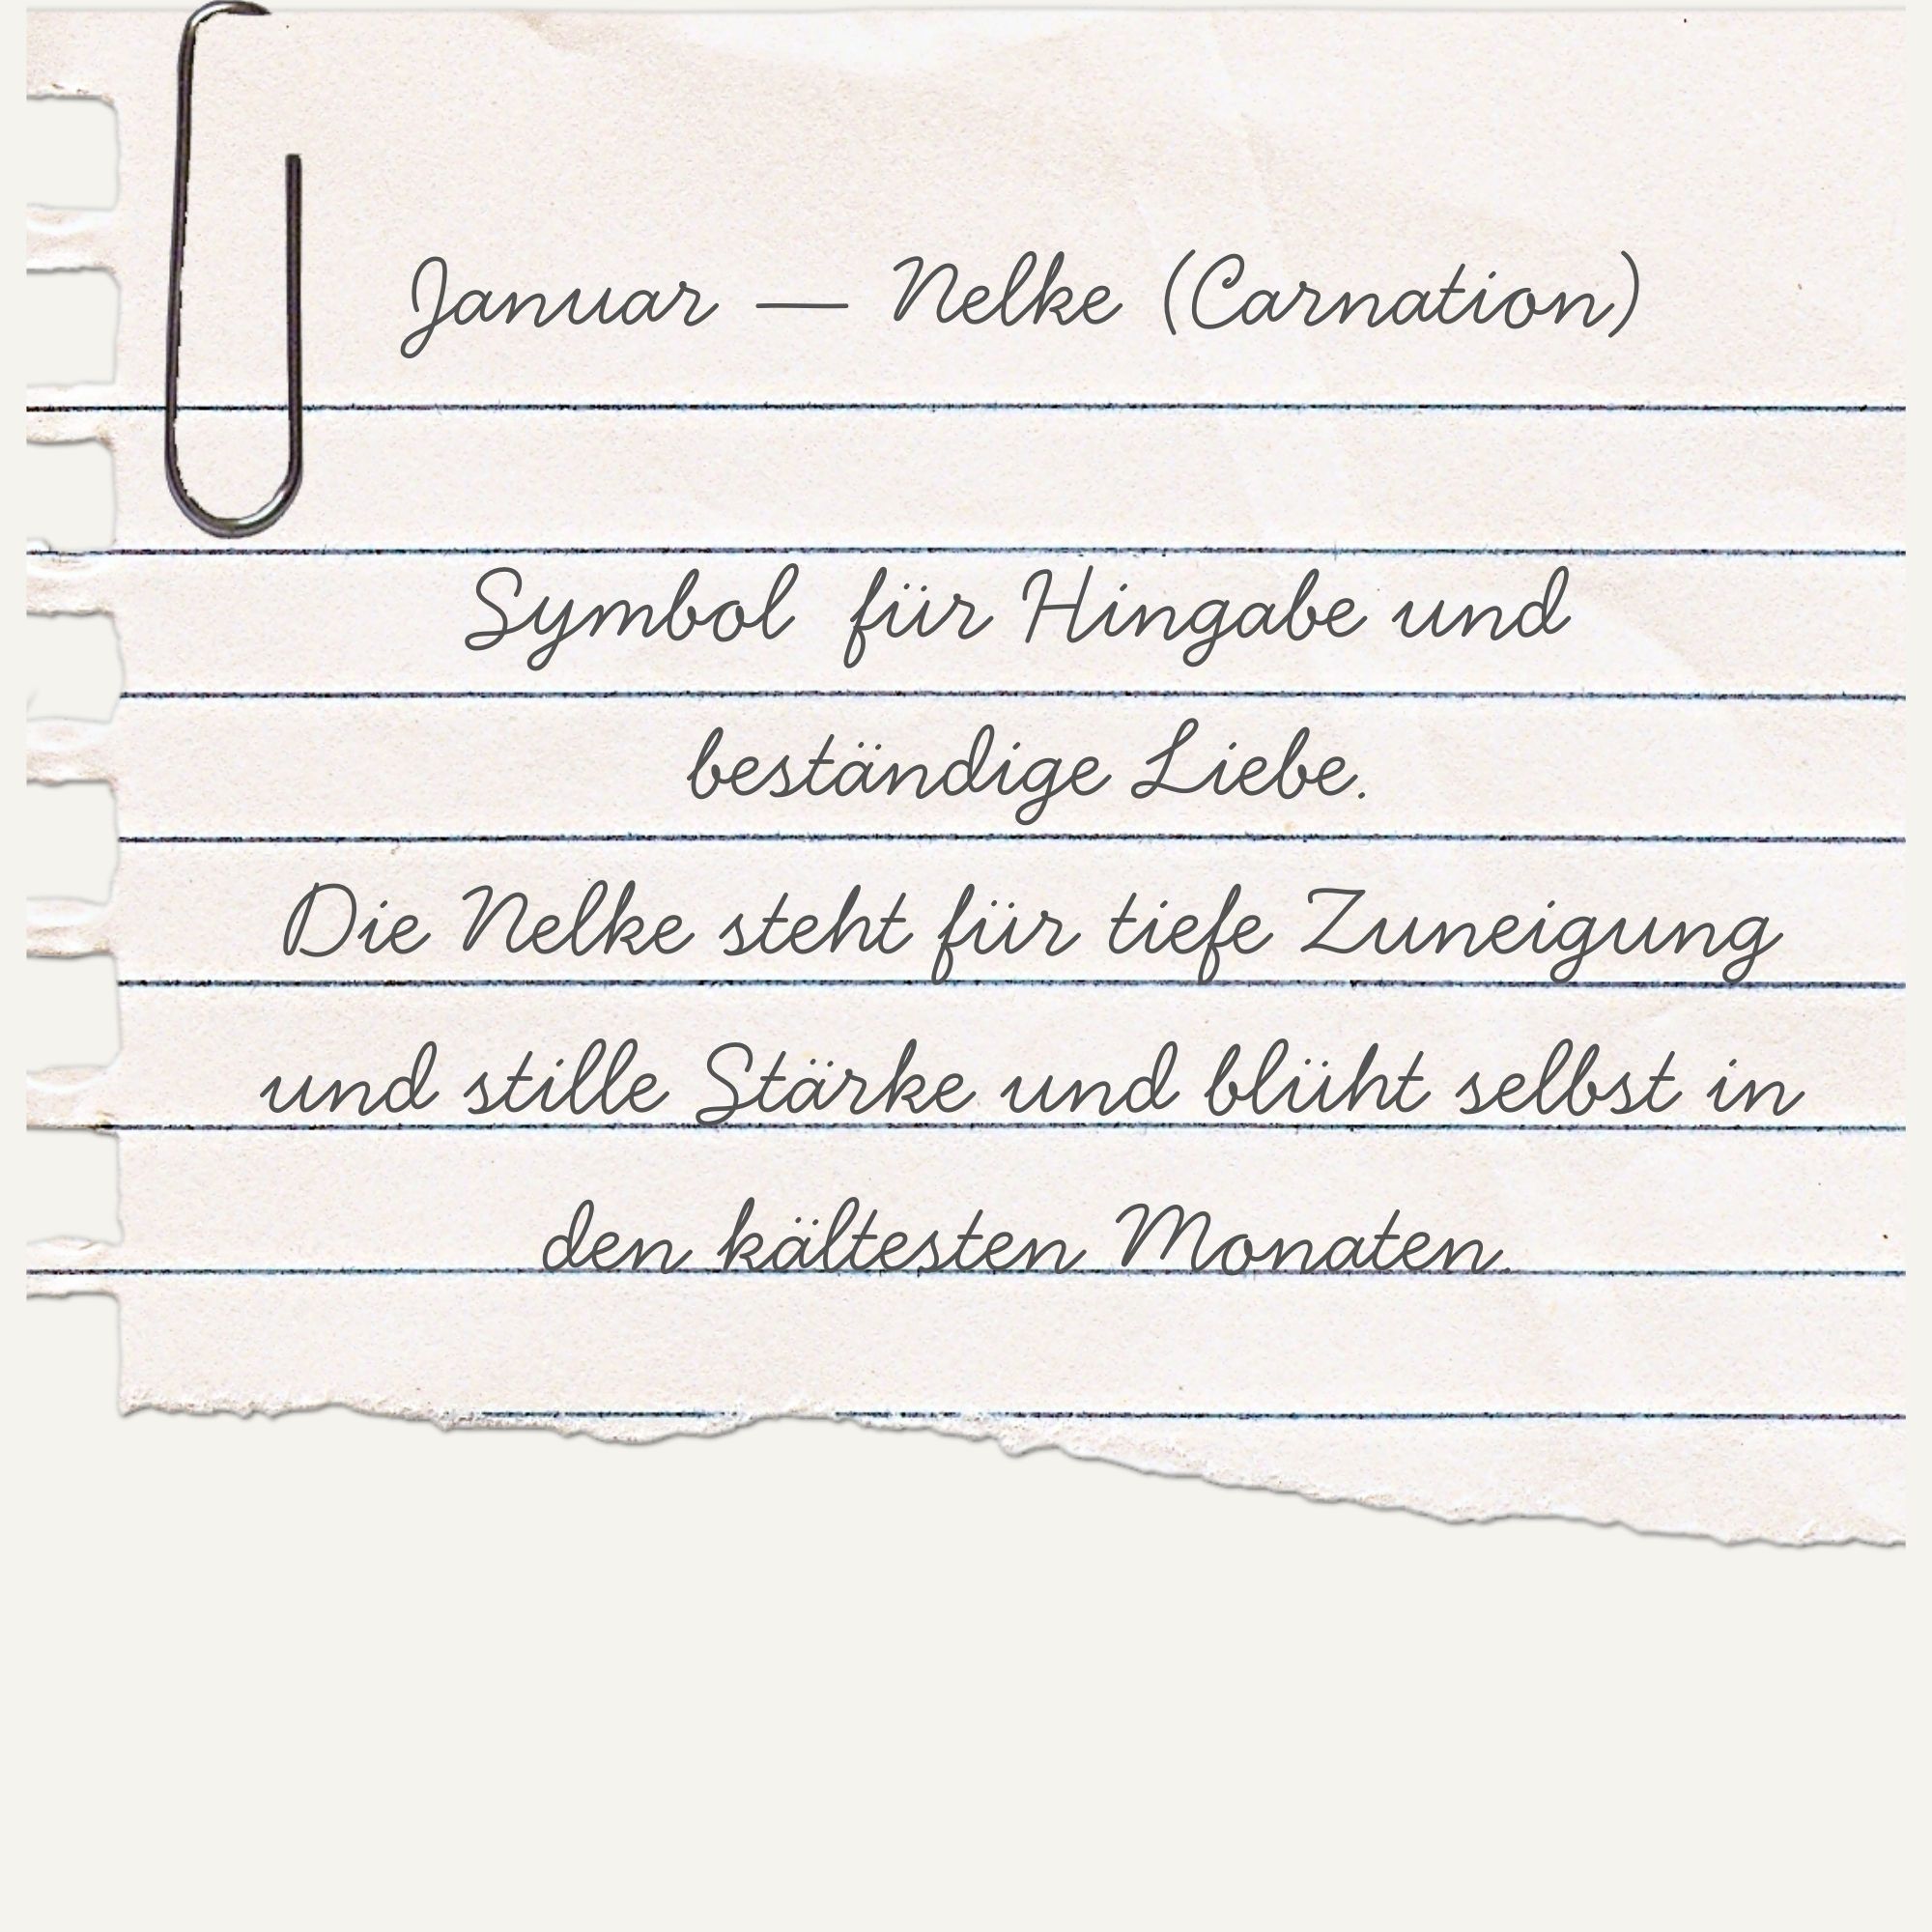 Januar — Nelke (Carnation)
Symbol für Hingabe und
beständige Liebe.
Die Nelke steht für tiefe Zuneigung
und stille Stärke und blüht selbst in
den kältesten Monaten.